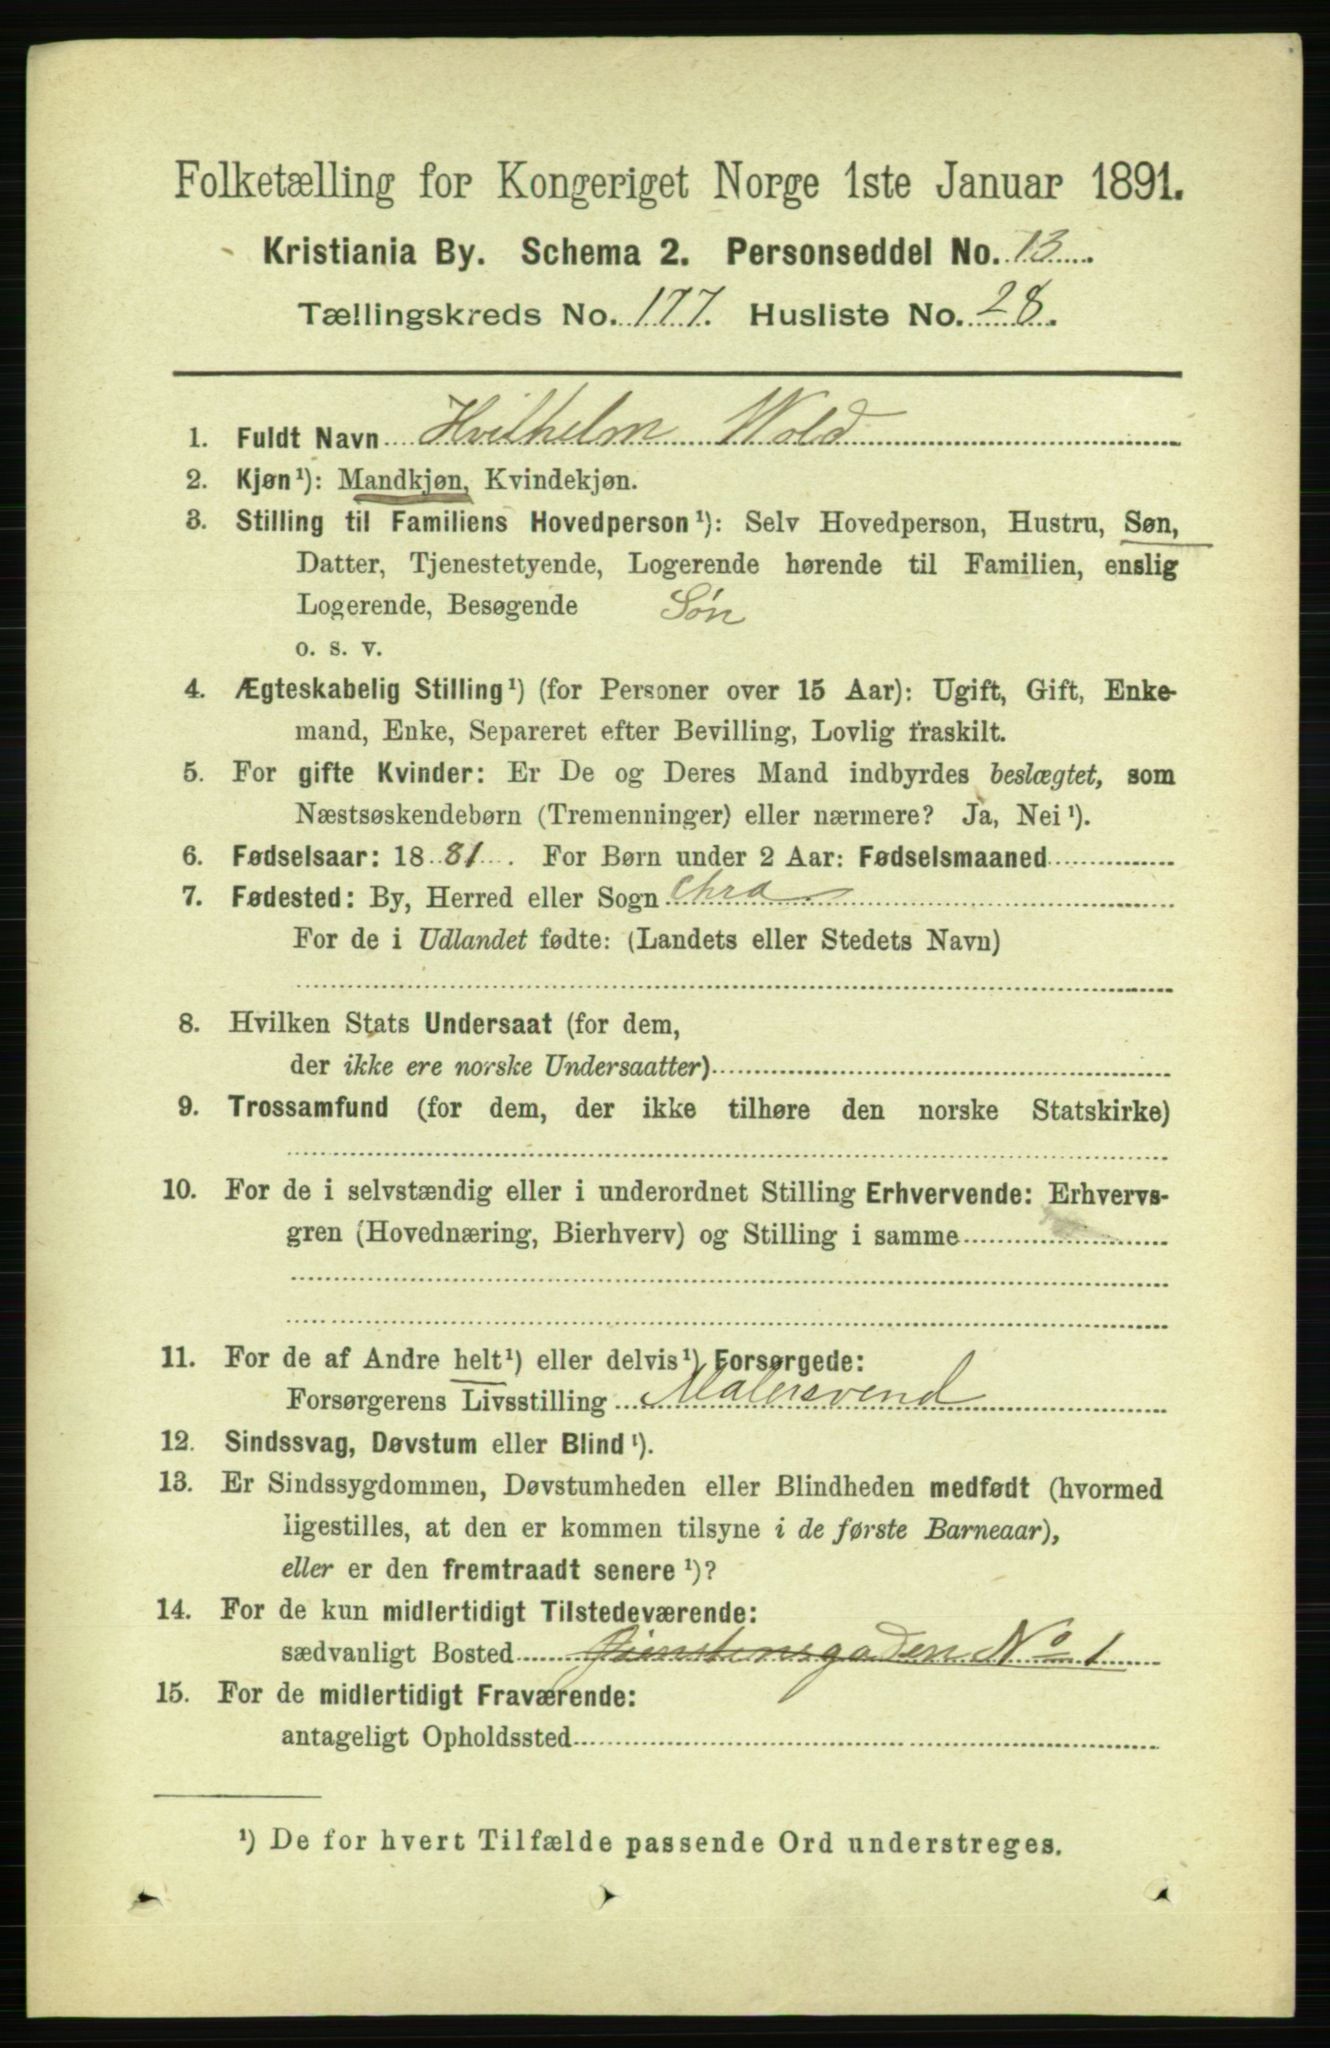 Folketælling for Kongeriget Norge 1ste Januar 1891.
Kristiania By. Schema 2. Personseddel No. 13.
Tællingskreds No. 177. Husliste No. 28.
1. Fuldt Navn Hvilhelm Wold
2. Kjøn¹): Mandkjøn, Kvindekjøn.
3. Stilling til Familiens Hovedperson¹): Selv Hovedperson, Hustru, Søn,
Datter, Tjenestetyende, Logerende hørende til Familien, enslig
Logerende, Besøgende Søn
o. s. v.
4. Ægteskabelig Stilling¹) (for Personer over 15 Aar): Ugift, Gift, Enke-
mand, Enke, Separeret efter Bevilling, Lovlig fraskilt.
5. For gifte Kvinder: Er De og Deres Mand indbyrdes beslægtet, som
Næstsøskendebørn (Tremenninger) eller nærmere? Ja, Nei¹).
6. Fødselsaar: 1881. For Børn under 2 Aar: Fødselsmaaned
7. Fødested: By, Herred eller Sogn Chra
For de i Udlandet fødte: (Landets eller Stedets Navn)
8. Hvilken Stats Undersaat (for dem,
der ikke ere norske Undersaatter)
9. Trossamfund (for dem, der ikke tilhøre den norske Statskirke)
10. For de i selvstændig eller i underordnet Stilling Erhvervende: Erhvervs-
gren (Hovednæring, Bierhverv) og Stilling i samme
11. For de af Andre helt¹) eller delvis¹) Forsørgede:
Forsørgerens Livsstilling Malersvend
12. Sindssvag, Døvstum eller Blind¹).
13. Er Sindssygdommen, Døvstumheden eller Blindheden medfødt (hvormed
ligestilles, at den er kommen tilsyne i de første Barneaar),
eller er den fremtraadt senere¹)?
14. For de kun midlertidigt Tilstedeværende:
sædvanligt Bosted No 1
15. For de midlertidigt Fraværende:
antageligt Opholdssted
¹) De for hvert Tilfælde passende Ord understreges.